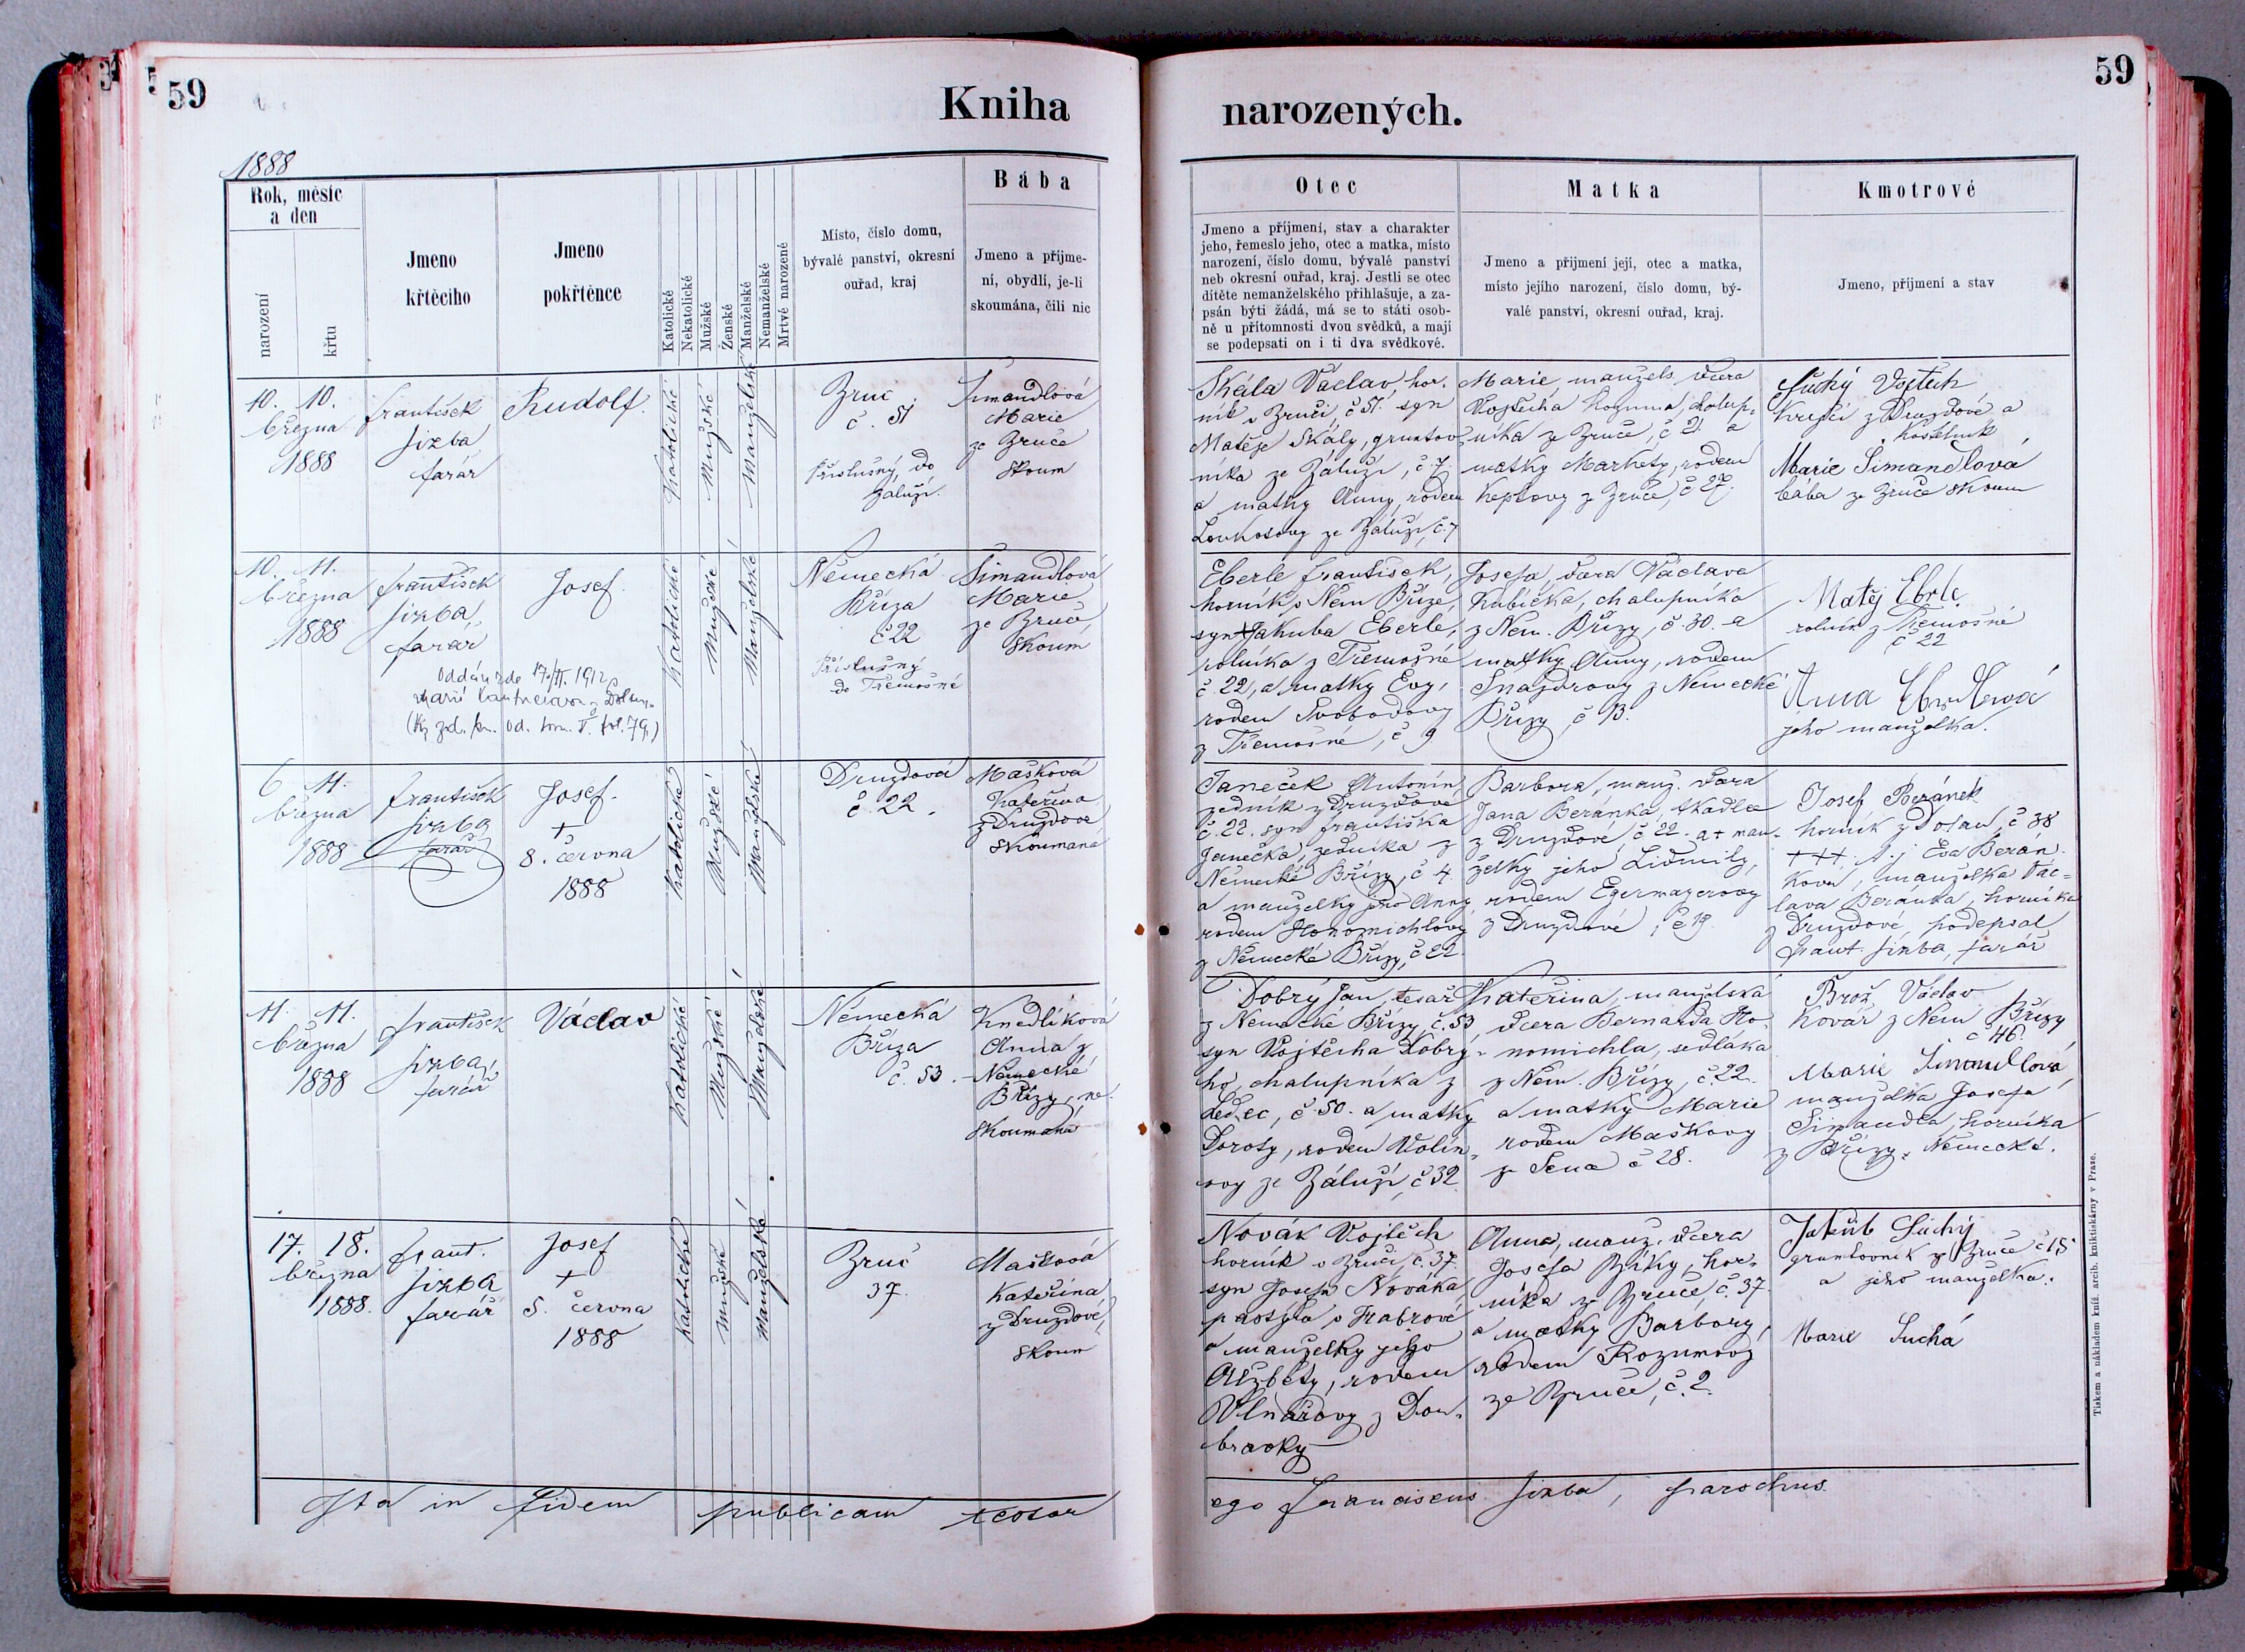 59
Kniha
narozených.
59
1888
Rok, měsíc
a den
narození
křtu
Jmeno
křtěcího
Jmeno
pokřtěnce
Katolické
Nekatolické
Mužské
Ženské
Manželské
Nemanželské
Mrtvé narozené
Místo, číslo domu,
bývalé panství, okresní
ouřad, kraj
Bába
Jmeno a příjme-
ní, obydlí, je-li
skoumána, čili nic
Otec
Jmeno a příjmení, stav a charakter
jeho, řemeslo jeho, otec a matka, místo
narození, číslo domu, bývalé panství
neb okresní ouřad, kraj. Jestli se otec
dítěte nemanželského přihlašuje, a za-
psán býti žádá, má se to státi osob-
ně u přítomnosti dvou svědků, a mají
se podepsati on i ti dva svědkové.
Matka
Jmeno a přijmení její, otec a matka,
místo jejího narození, číslo domu, bý-
valé panství, okresní ouřad, kraj.
Kmotrové
Jmeno, příjmení a stav
10. 10.
března
1888
František
Jizba
farář
Rudolf.
Katolické
Mužské
Manželské
Zruč
č. 51
Příslušný do
Záluží.
Šimandlová
Marie
ze Zruče
skoum
Skála Václav hor-
ník v Zruči, č 51. syn
Matěje Skály, gruntov-
níka ze Záluží, č. 7.
a matky Anny, rodem
ze Záluží, č. 7
Marie manžels. dcera
Vojtěcha Rozuma, chalup-
níka ze Zruče, č 2. a
matky Markety, rodem
ze Zruče, č 27.
Suchý Vojtěch
krejčí z Druzdové a
kostelník
Marie Šimandlová
bába ze Zruče skoum
10. 11.
března
1888
František
Jizba,
farář
Oddán zde 17/II. 1912 s
Marií
(Kz zd. kn. od. tom. II. fol. 79.)
Josef.
Katolické
Mužské
Manželské
Německá
Bříza
č 22
Příslušný
do Třemošné
Šimandlová
Marie
ze Zruč
skoum
Eberle František,
horník v Něm Bříze,
syn + Jakuba Eberle,
rolníka z Třemošné
č. 22, a matky Evy,
rodem Svobodovy
z Třemošné, č 9
Josefa, dcera Václava
Kubíčka, chalupníka
z Něm. Břízy, č. 30. a
matky Anny, rodem
Šnajdrovy z Německé
Břízy, č 13.
Matěj Ebrle
rolník z Třemošné
č 22
Anna Ebrlová
jeho manželka.
6 11.
března
1888
František
Jizba
farář
Josef.
+
8. června
1888
Katolické
Mužské
Manželské
Druzdová
č. 22.
Mašková
Kateřina
z Druzdové
skoumaná
Janeček Antonín,
zedník z Druzdové
č. 22. syn Františka
Janečka, zedníka z
Německé Břízy, č 4.
a manželky jeho Anny
rodem Honomichlovy
z Německé Břízy, č 22
Barbora, manž. dcera
Jana Beránka, tkadlce
z Druzdové, č 22. a + man-
želky jeho Lidmily,
rodem Egermayerovy
z Druzdové, č 19.
Josef Beránek
horník z Dolan, č 38
+++ t. j. Eva Berán-
ková, manželka Vác-
lava Beránka, horníka
z Druzdové, podepsal
Frant. Jizba, farář
11. 11.
března
1888
František
Jizba,
farář
Václav
Katolické
Mužské
Manželské
Německá
Bříza
č. 53.
Knedlíková
Anna z
Německé
Břízy, ne-
skoumaná
Dobrý Jan, tesař
z Německé Břízy, č. 53
syn Vojtěcha Dobrý-
ho, chalupníka z
Ledec, č. 50. a matky
Doroty, rodem Volín-
ovy ze Záluží, č 32.
Kateřina, manželská
dcera Bernarda Ho-
nomichla, sedláka
z Něm. Břízy, č. 22.
a matky Marie
rodem Maškovy
ze Sence č 28.
Brož Václav
kovář z Něm Břízy
č 46.
Marie Šimandlová,
manželka Josefa
Šimandla, horníka
z Břízy Německé.
17. 18.
března
1888.
Frant.
Jizba
farář
Josef
+
5. června
1888
Katolické
Mužské
Manželské
Zruč
37.
Mašková
Kateřina,
z Druzdové,
skoum
Novák Vojtěch
horník v Zruči, č. 37.
syn Josefa Nováka,
pastýře v Habrové
a manželky jeho
Alžběty, rodem
Vlnařovy z Dou-
bravky
Anna, manž. dcera
Josefa hor-
níka ze Zruče, č. 37.
a matky Barbory,
rodem Rozumovy
ze Zruče, č. 2.
Jakub Suchý
gruntovník ze Zruče č 15
a jeho manželka.
Marie Suchá
Ita in fidem publicam testor
ego Franciscus Jizba, parochus.
Tiskem a nákladem kníž. arcib. knihtiskárny v Praze.